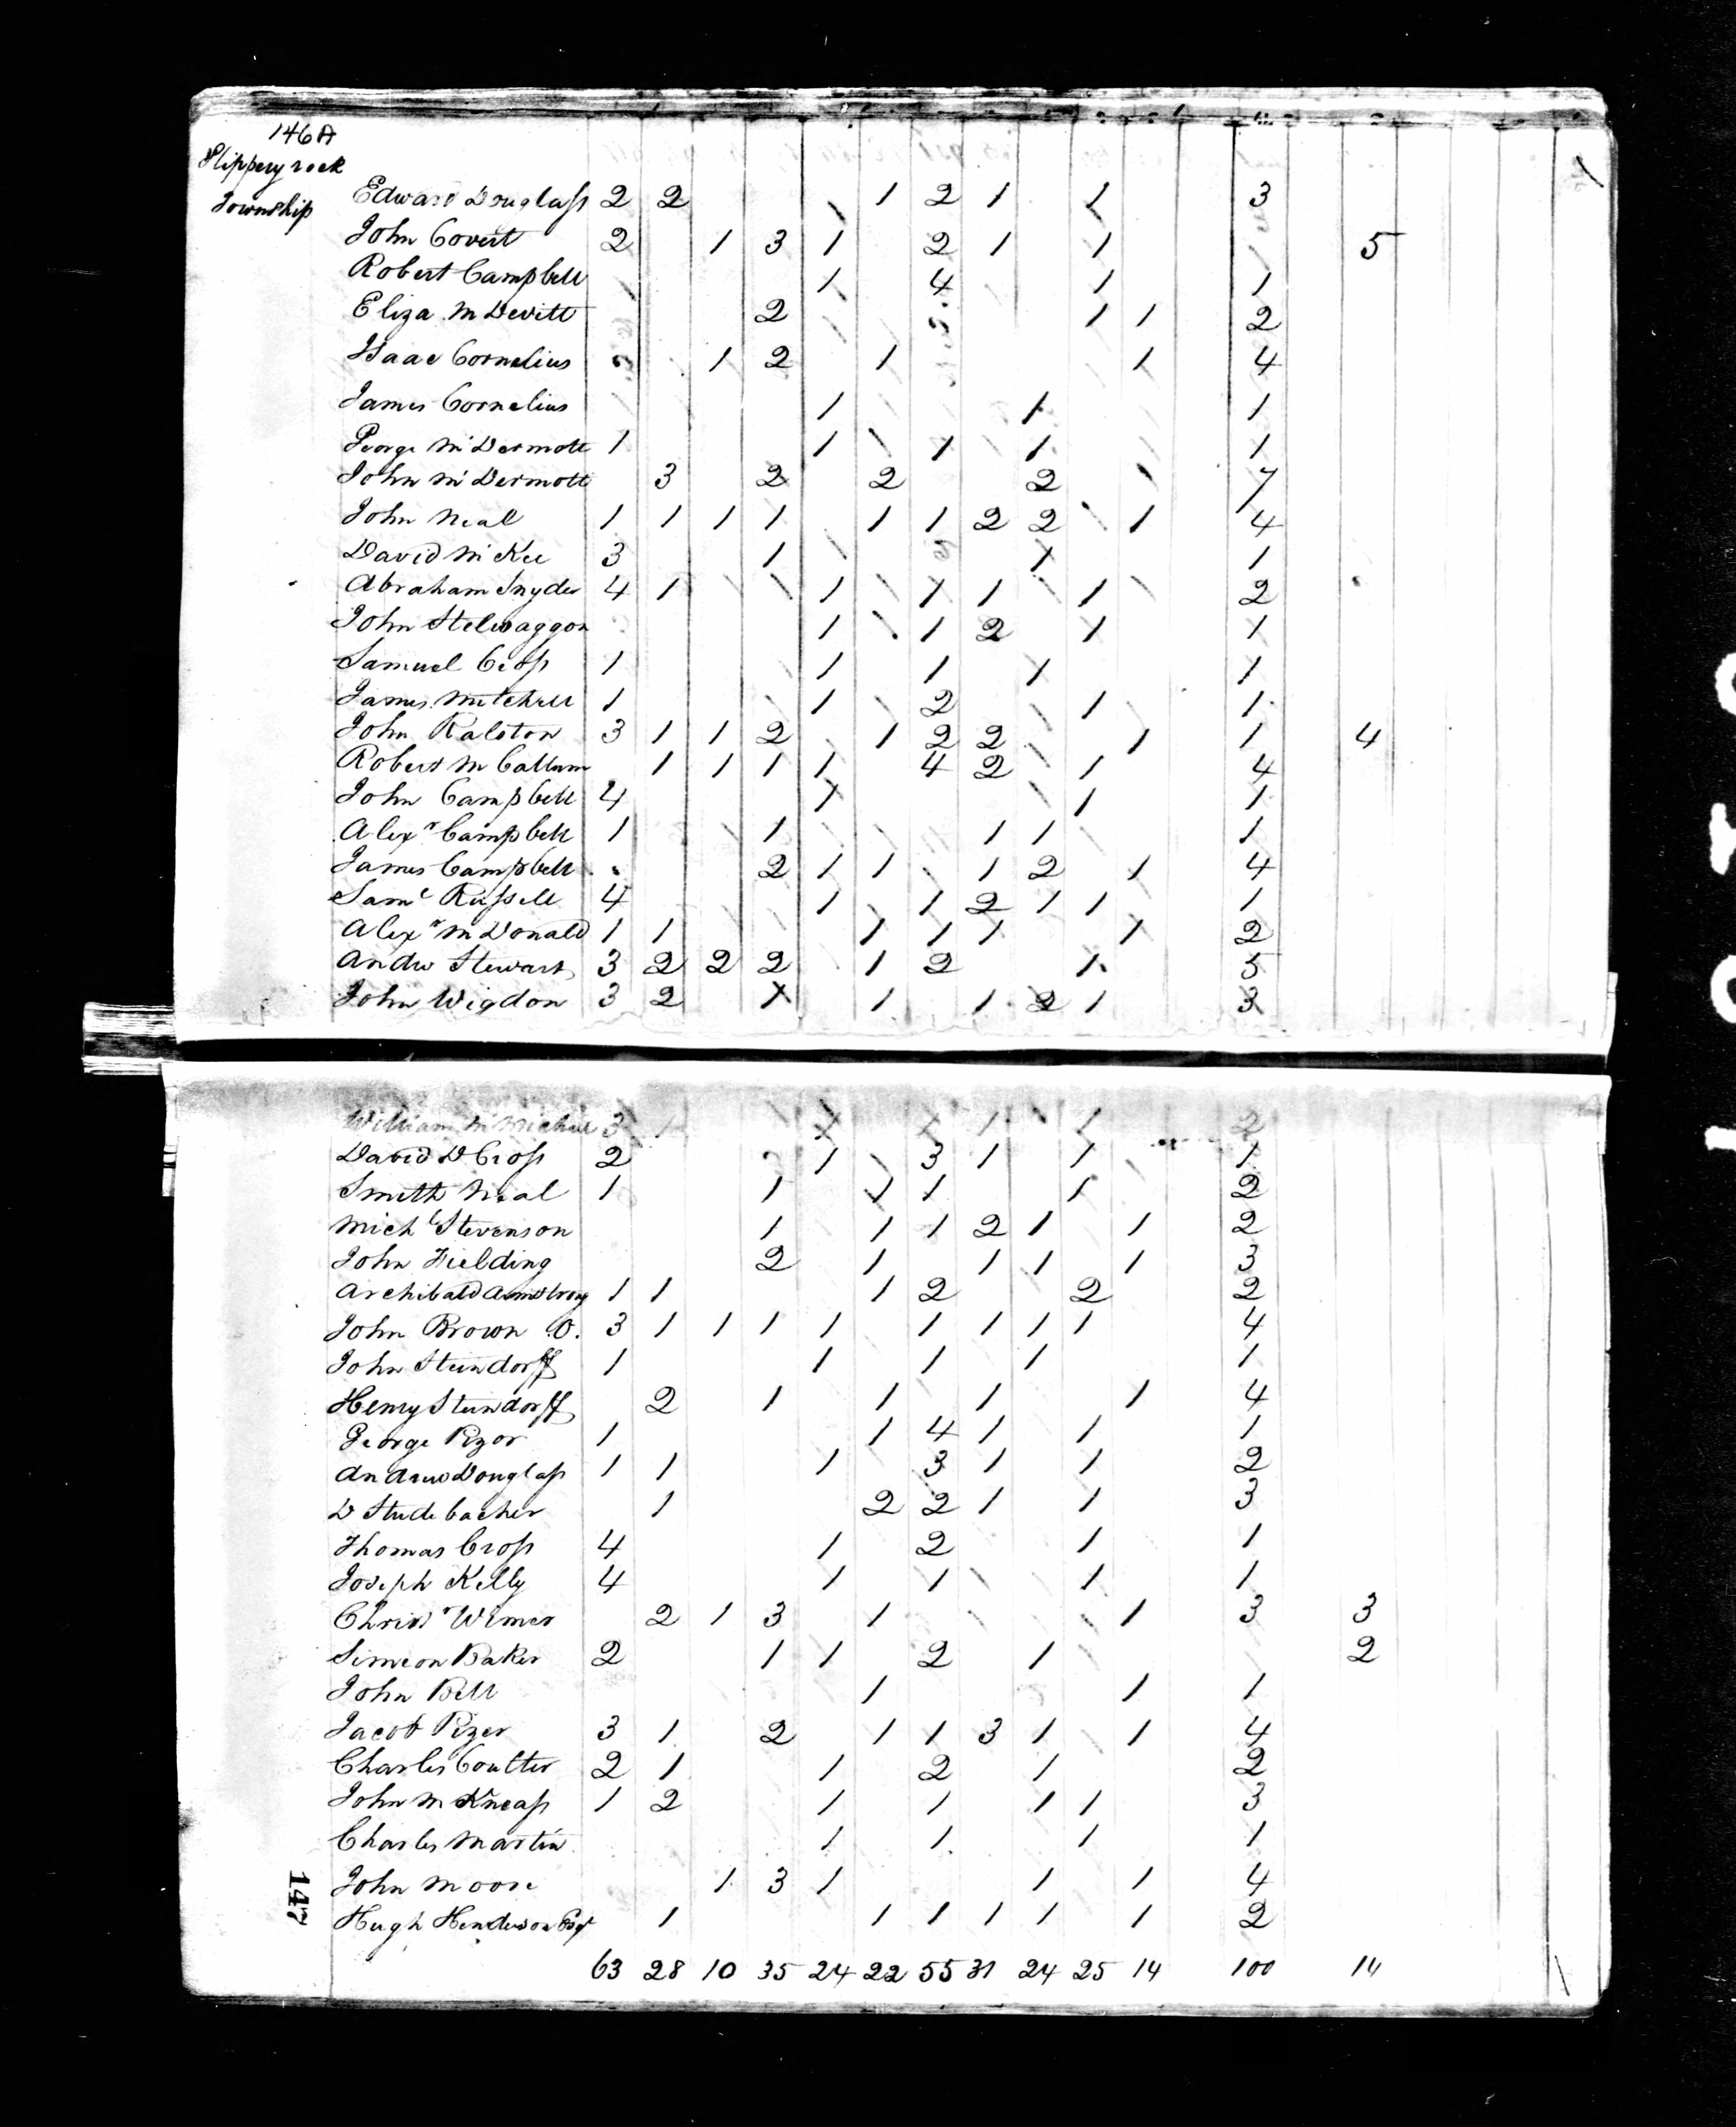 146A
Slippery rock
Township
Edward Douglass 2 2 1 2 1 1 3
John Covert 2 1 3 1 2 1 1 5
Robert Campbell 1 4 1 1
Eliza McDevitt 2 1 1 2
Isaac Cornelius 1 2 1 1 4
James Cornelius 1 1 1
George McDermott 1 1 1 1 1
John McDermott 3 2 2 2 1 7
John Neal 1 1 1 1 1 1 2 2 1 4
David McKee 3 1 1 1
Abraham Snyder 4 1 1 1 1 1 2
John Stelwaggon 1 1 2 1 1
Samuel Cross 1 1 1 1 1
James Mitchell 1 1 2 1 1
John Ralston 3 1 1 2 1 2 2 1 1 4
Robert McCallum 1 1 1 1 4 2 1 4
John Campbell 4 1 1 1
Alexr Campbell 1 1 1 1 1
James Campbell 2 1 1 1 2 1 4
Saml Russell 4 1 1 2 1 1 1
Alexr McDonald 1 1 1 1 1 1 2
Andw Stewart 3 2 2 2 1 2 1 5
John Wigdon 3 2 1 1 1 2 1 3
William McMichael 3 1 1 1 1 1 2
David D Cross 2 1 3 1 1 1
Smith Neal 1 1 1 1 1 2
Michl Stevenson 1 1 1 2 1 1 2
John Fielding 2 1 1 1 1 3
Archibald Armstrong 1 1 1 2 2 2
John Brown O. 3 1 1 1 1 1 1 1 1 4
John Steindorff 1 1 1 1 1
Henry Steindorff 2 1 1 1 1 4
George Pizor 1 1 4 1 1 1
Andrew Douglass 1 1 1 3 1 1 2
D Studebacher 1 2 2 1 1 3
Thomas Cross 4 1 2 1 1
Joseph Kelly 4 1 1 1 1
Christr Wimer 2 1 3 1 1 3 3
Simeon Baker 2 1 1 2 1 2
John Bell 1 1 1
Jacob Pizer 3 1 2 1 1 3 1 1 4
Charles Coulter 2 1 1 2 1 2
John McKneass 1 2 1 1 1 1 3
Charles Martin 1 1 1 1
John Moore 1 3 1 1 1 4
Hugh Henderson Esqr 1 1 1 1 1 1 2
147
63 28 10 35 24 22 55 31 24 25 14 100 14